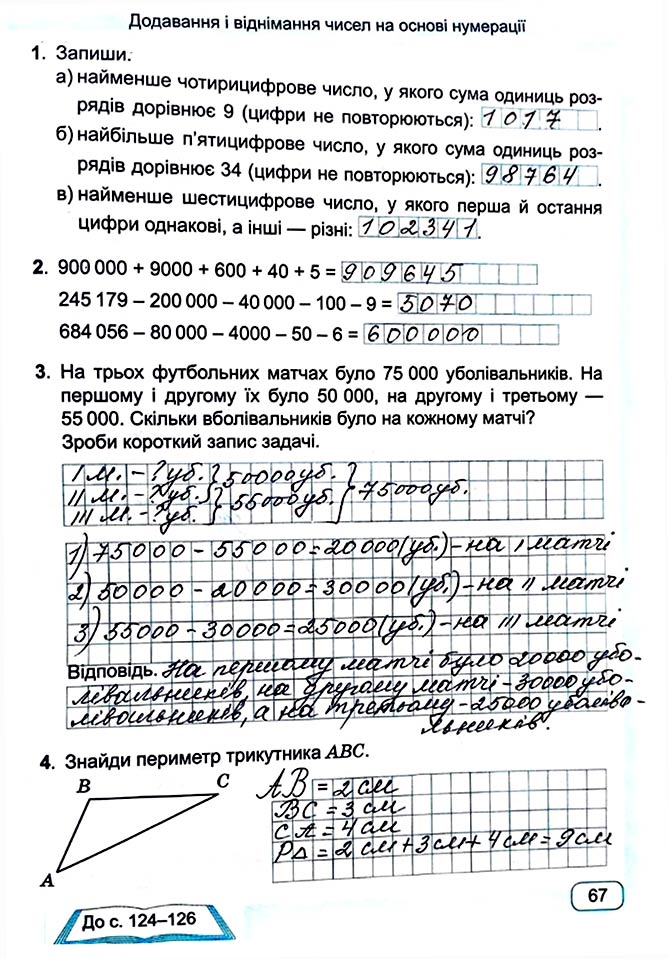 Додавання і віднімання чисел на основі нумерації
1. Запиши.
а) найменше чотирицифрове число, у якого сума одиниць роз-
рядів дорівнює 9 (цифри не повторюються): 1017.
б) найбільше п'ятицифрове число, у якого сума одиниць роз-
рядів дорівнює 34 (цифри не повторюються): 98764.
в) найменше шестицифрове число, у якого перша й остання
цифри однакові, а інші — різні: 102341.
2. 900 000 + 9000 + 600 + 40 + 5 = 909645
245 179 – 200 000 – 40 000 – 100 – 9 = 5070
684 056 – 80 000 – 4000 – 50 – 6 = 600000
3. На трьох футбольних матчах було 75 000 уболівальників. На
першому і другому їх було 50 000, на другому і третьому —
55 000. Скільки вболівальників було на кожному матчі?
Зроби короткий запис задачі.
I м. – ? уб. } 50000 уб. }
II м. – ? уб. } } 55000 уб. } 75000 уб.
III м. – ? уб. }
1) 75000 – 55000 = 20000 (уб.) – на I матчі
2) 50000 – 20000 = 30000 (уб.) – на II матчі
3) 55000 – 30000 = 25000 (уб.) – на III матчі
Відповідь. На першому матчі було 20000 убо-
лівальників, на другому матчі – 30000 убо-
лівальників, а на третьому – 25000 уболіва-
льників.
4. Знайди периметр трикутника ABC.
B C
A
AB = 2 см
BC = 3 см
CA = 4 см
P△ = 2 см + 3 см + 4 см = 9 см
67
До с. 124–126